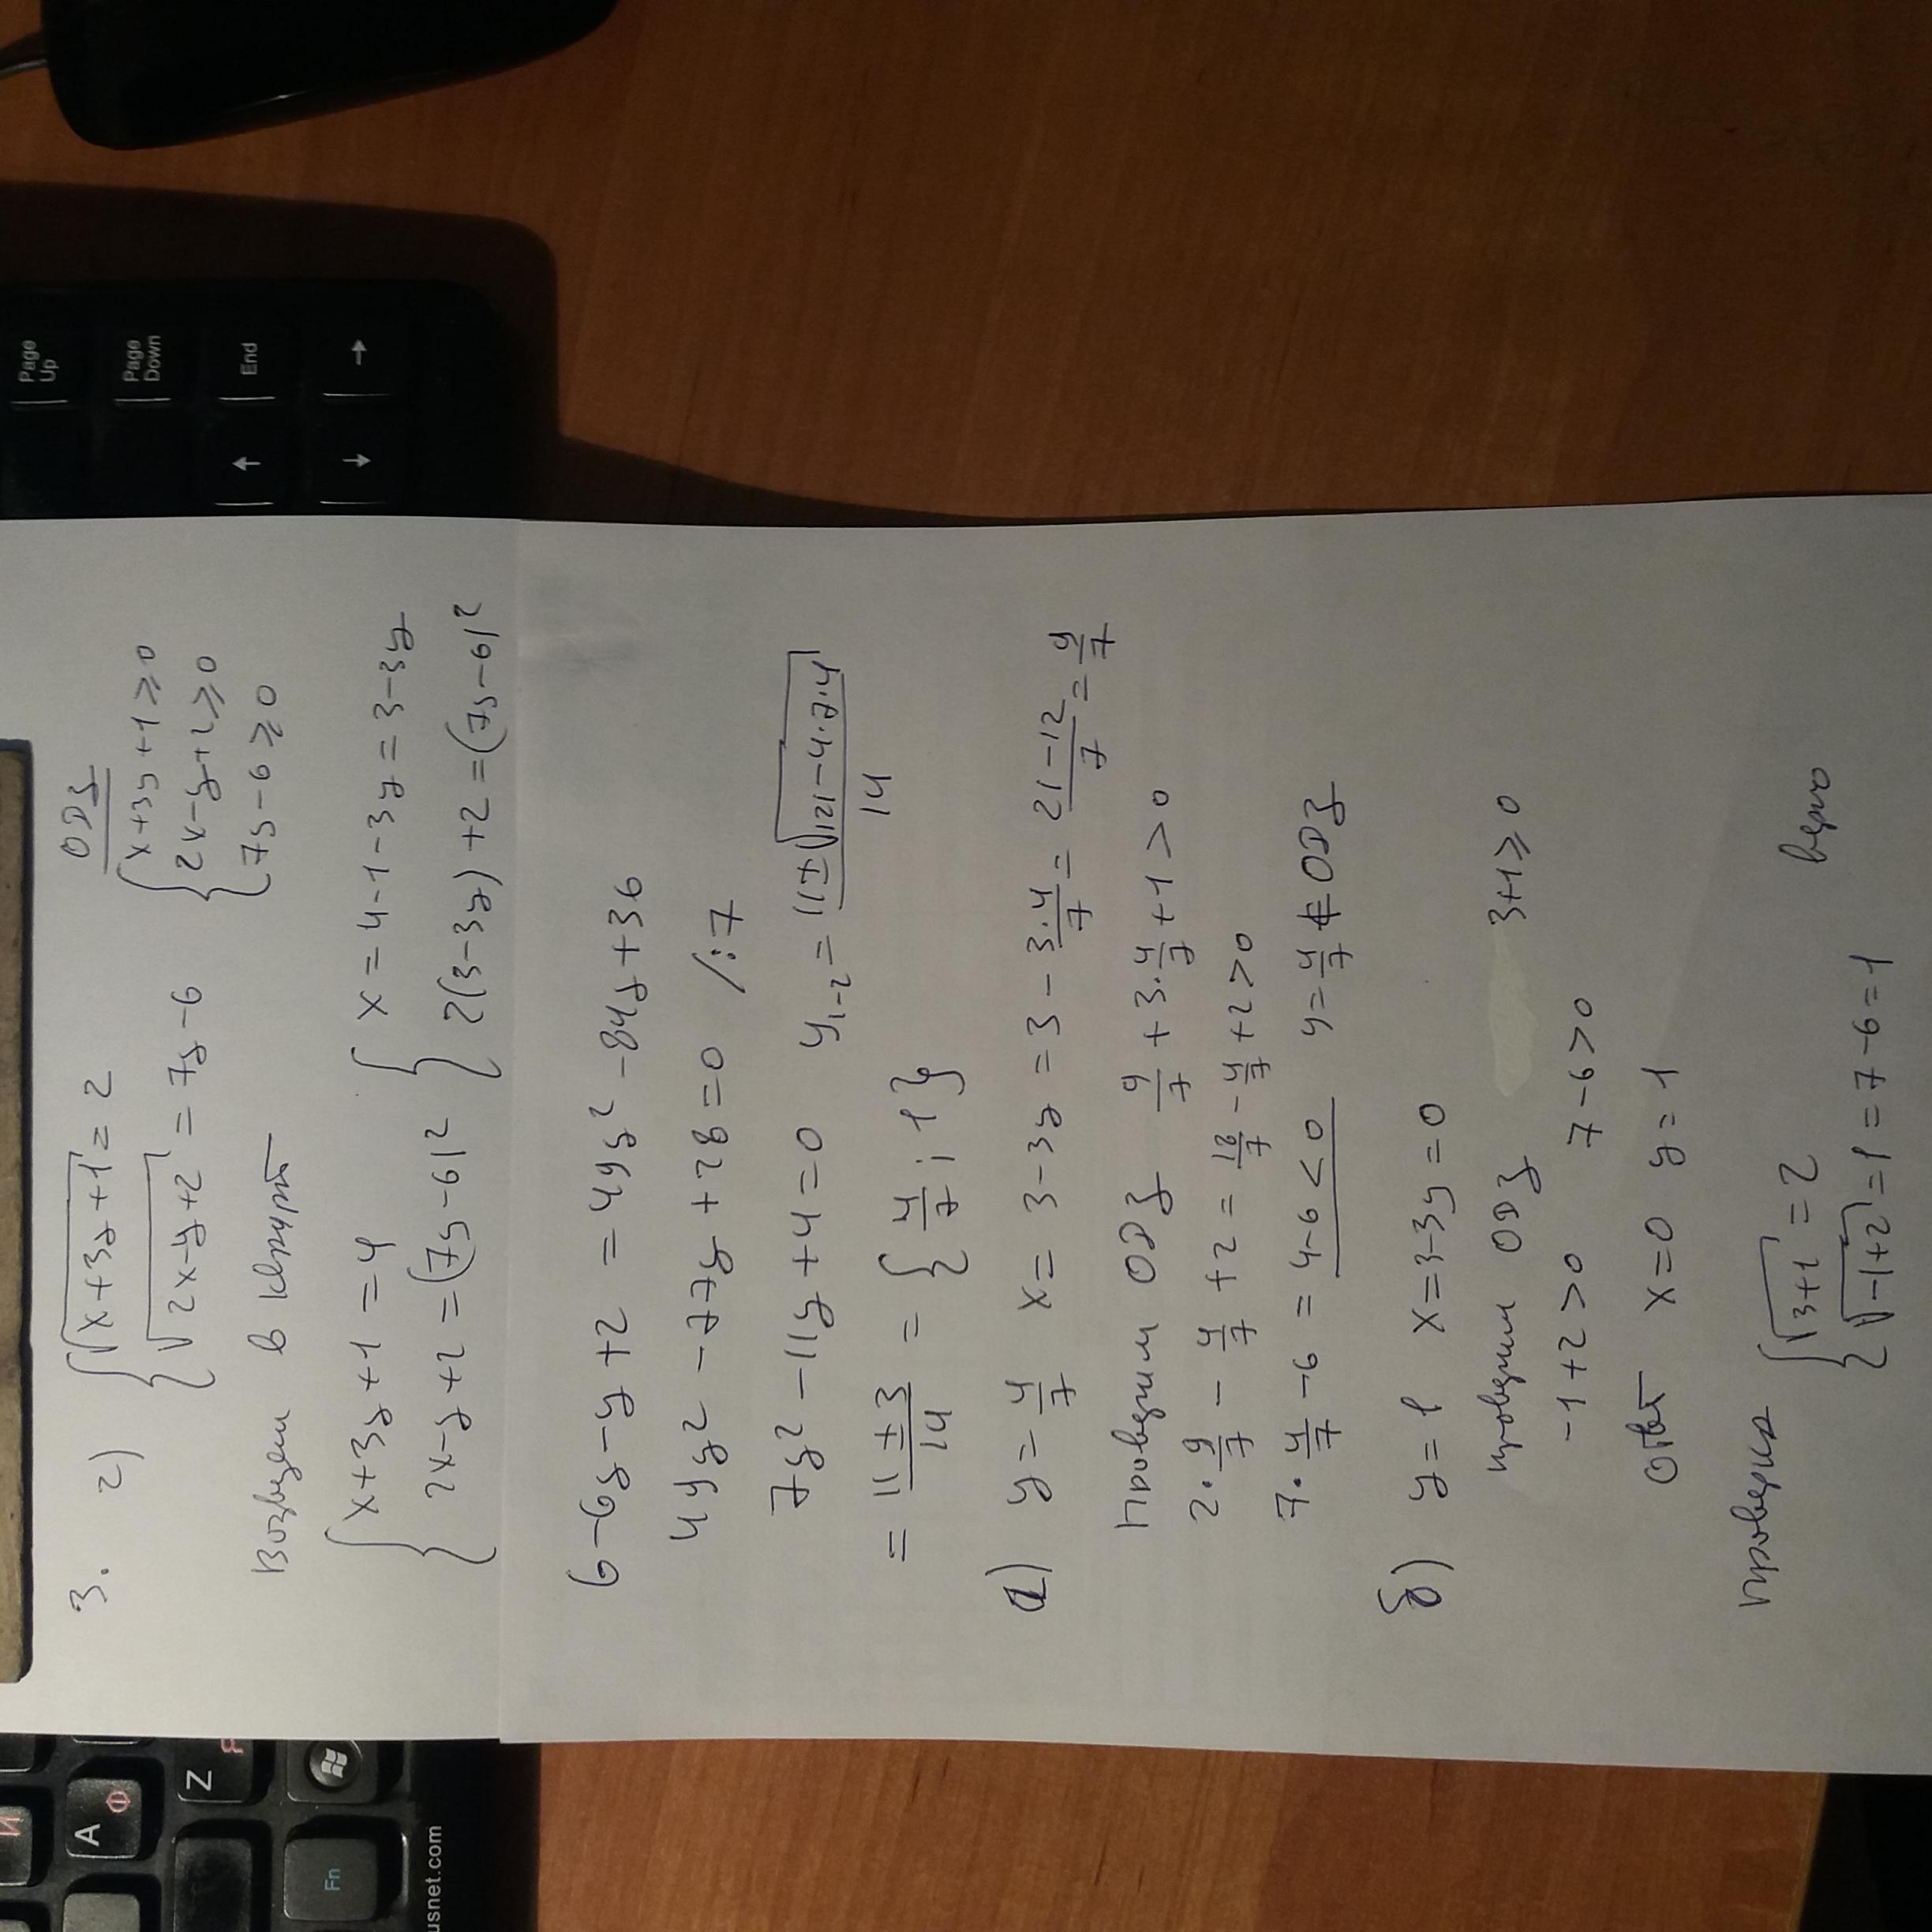 3. 2) { √(x+3y+1) = 2
√(2x-y+2) = 7y-6
ОДЗ
{ x+3y+1 ≥ 0
2x-y+2 ≥ 0
7y-6 ≥ 0
Возведем в квадрат
{ x+3y+1 = 4
2x-y+2 = (7y-6)²
{ x = 4-1-3y = 3-3y
2(3-3y)+2 = (7y-6)²
6-6y-y+2 = 49y²-84y+36
49y²-77y+28=0 /:7
7y²-11y+4=0 y₁₋₂ = (11±√(121-4·7·4))/14
= (11±3)/14 = {4/7; 1}
а) y = 4/7 x = 3-3y = 3 - 3·4/7 = (21-12)/7 = 9/7
Проверим ОДЗ 9/7 + 3·4/7 + 1 > 0
2·9/7 - 4/7 + 2 = 18/7 - 4/7 + 2 > 0
7·4/7 - 6 = 4-6 < 0 y = 4/7 ∉ ОДЗ
б) y = 1 x = 3-3y = 0
проверим ОДЗ 3+1 ≥ 0
-1+2 > 0 7-6 > 0
Ответ x=0 y=1
Проверка { √(3+1) = 2
√(-1+2) = 1 = 7-6 = 1
верно
Page Up
Page Down
End
↑
↓
→
A Ф
Z Я
Fn
usnet.com